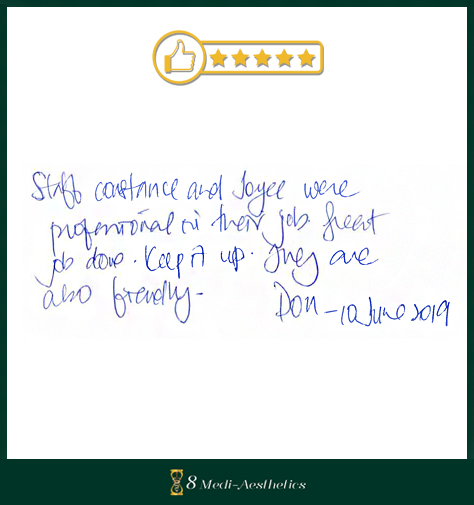 Staff constance and Joyce were
professional in their job. Great
job done. Keep it up. They are
also friendly.
Don - 10 June 2019
8 Medi-Aesthetics